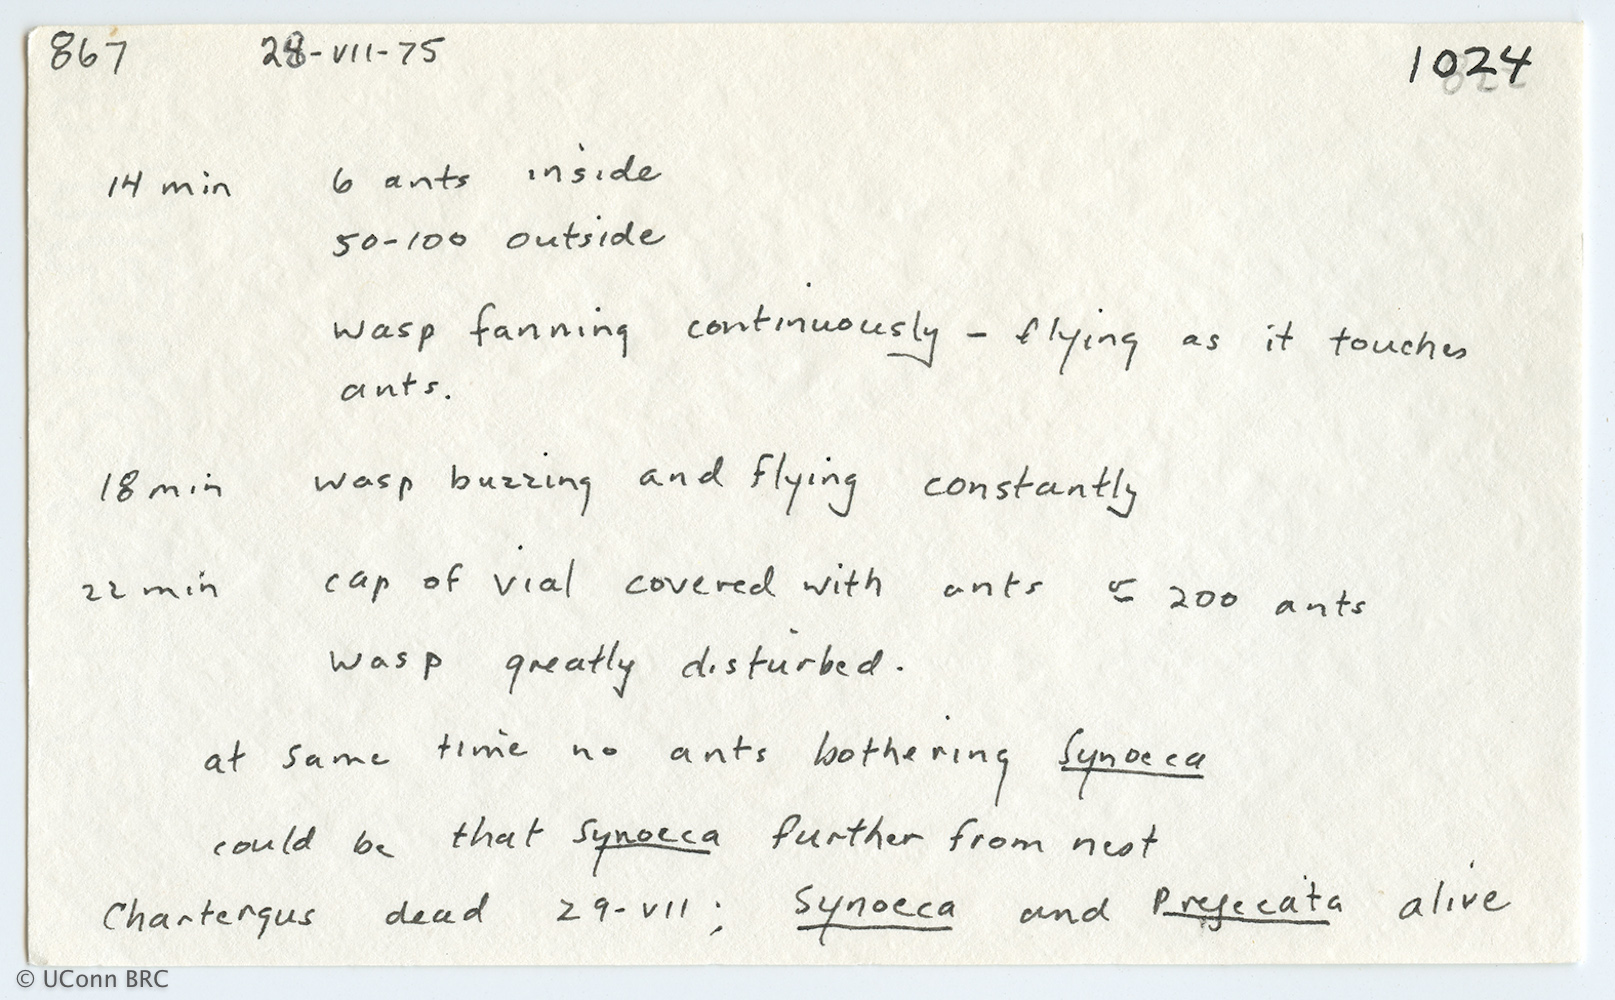 867 28-VII-75 1024
14 min 6 ants inside
50-100 outside
wasp fanning continuously - flying as it touches
ants.
18 min wasp buzzing and flying constantly
22 min cap of vial covered with ants ≈ 200 ants
wasp greatly disturbed.
at same time no ants bothering Synoeca
could be that Synoeca further from nest
Chartergus dead 29-VII; Synoeca and alive
© UConn BRC